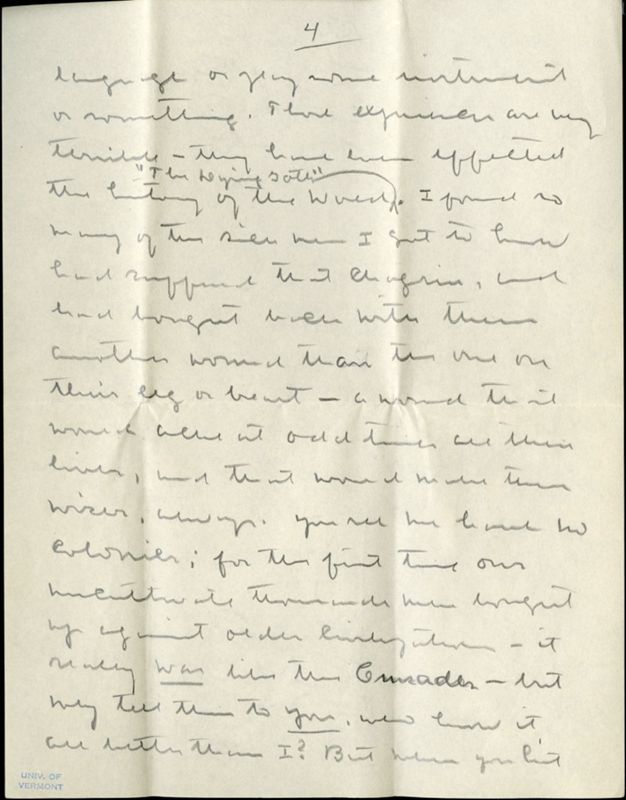 4
language or play some instrument
or something. Those experiences are very
terrible - they have even affected
"The Dying Gaul"
the history of the World. I found so
many of the sick men I got to know
had suffered that chagrin, and
had brought back with them
another wound than the one on
their leg or breast - a wound that
would ache at odd times all their
lives, and that would make them
wiser, always. You see we have no
Colonies; for the first time our
uncultivated thousands were brought
up against older Civilizations - it
really was like the Crusades - but
why tell this to you, who know it
all better than I? But when you hit
UNIV. OF
VERMONT